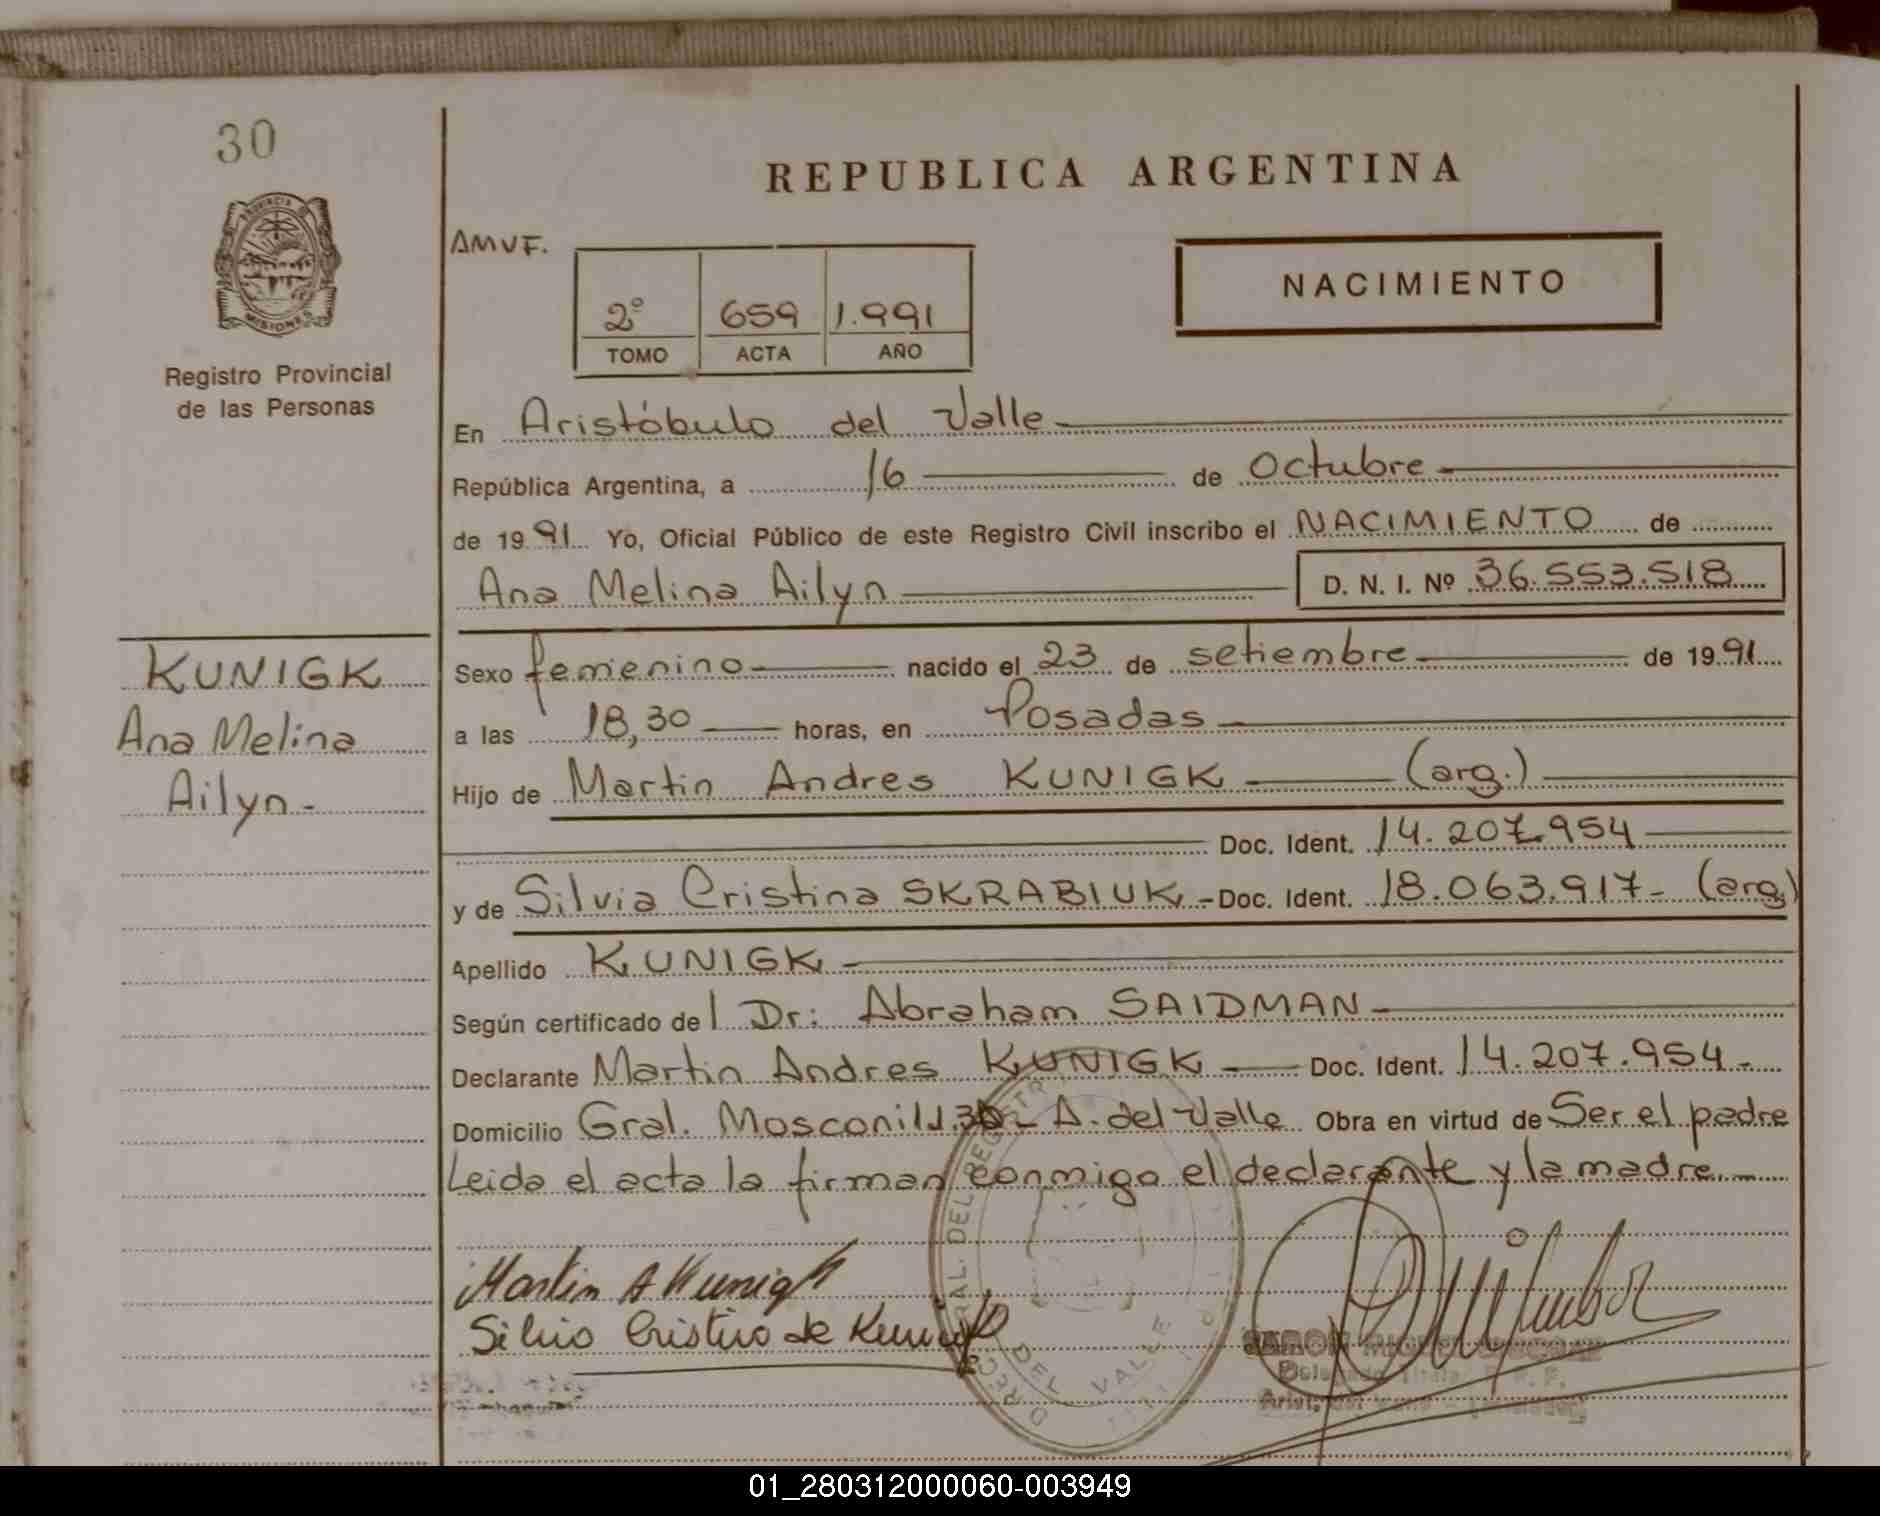 30
REPUBLICA ARGENTINA
PROVINCIA DE
MISIONES
Registro Provincial
de las Personas
AMVF.
2º 659 1.991
TOMO ACTA AÑO
NACIMIENTO
En Aristóbulo del Valle
República Argentina, a 16 de Octubre
de 1991 Yo, Oficial Público de este Registro Civil inscribo el NACIMIENTO de
Ana Melina Ailyn D. N. I. Nº 36.553.518
KUNIGK
Ana Melina
Ailyn.-
Sexo femenino nacido el 23 de setiembre de 1991
a las 18,30 horas, en Posadas
Hijo de Martin Andres KUNIGK (arg.)
Doc. Ident. 14.207.954
y de Silvia Cristina SKRABIUK - Doc. Ident. 18.063.917- (arg)
Apellido KUNIGK -
Según certificado del Dr: Abraham SAIDMAN -
Declarante Martin Andres KUNIGK Doc. Ident. 14.207.954.-
Domicilio Gral. Mosconi 30- A. del Valle Obra en virtud de Ser el padre
Leida el acta la firman conmigo el declarante y la madre.-
Martin A Kunigk
Silvia Cristina de Kunigk
DEL REGISTR
DEL VALLE
01_280312000060-003949